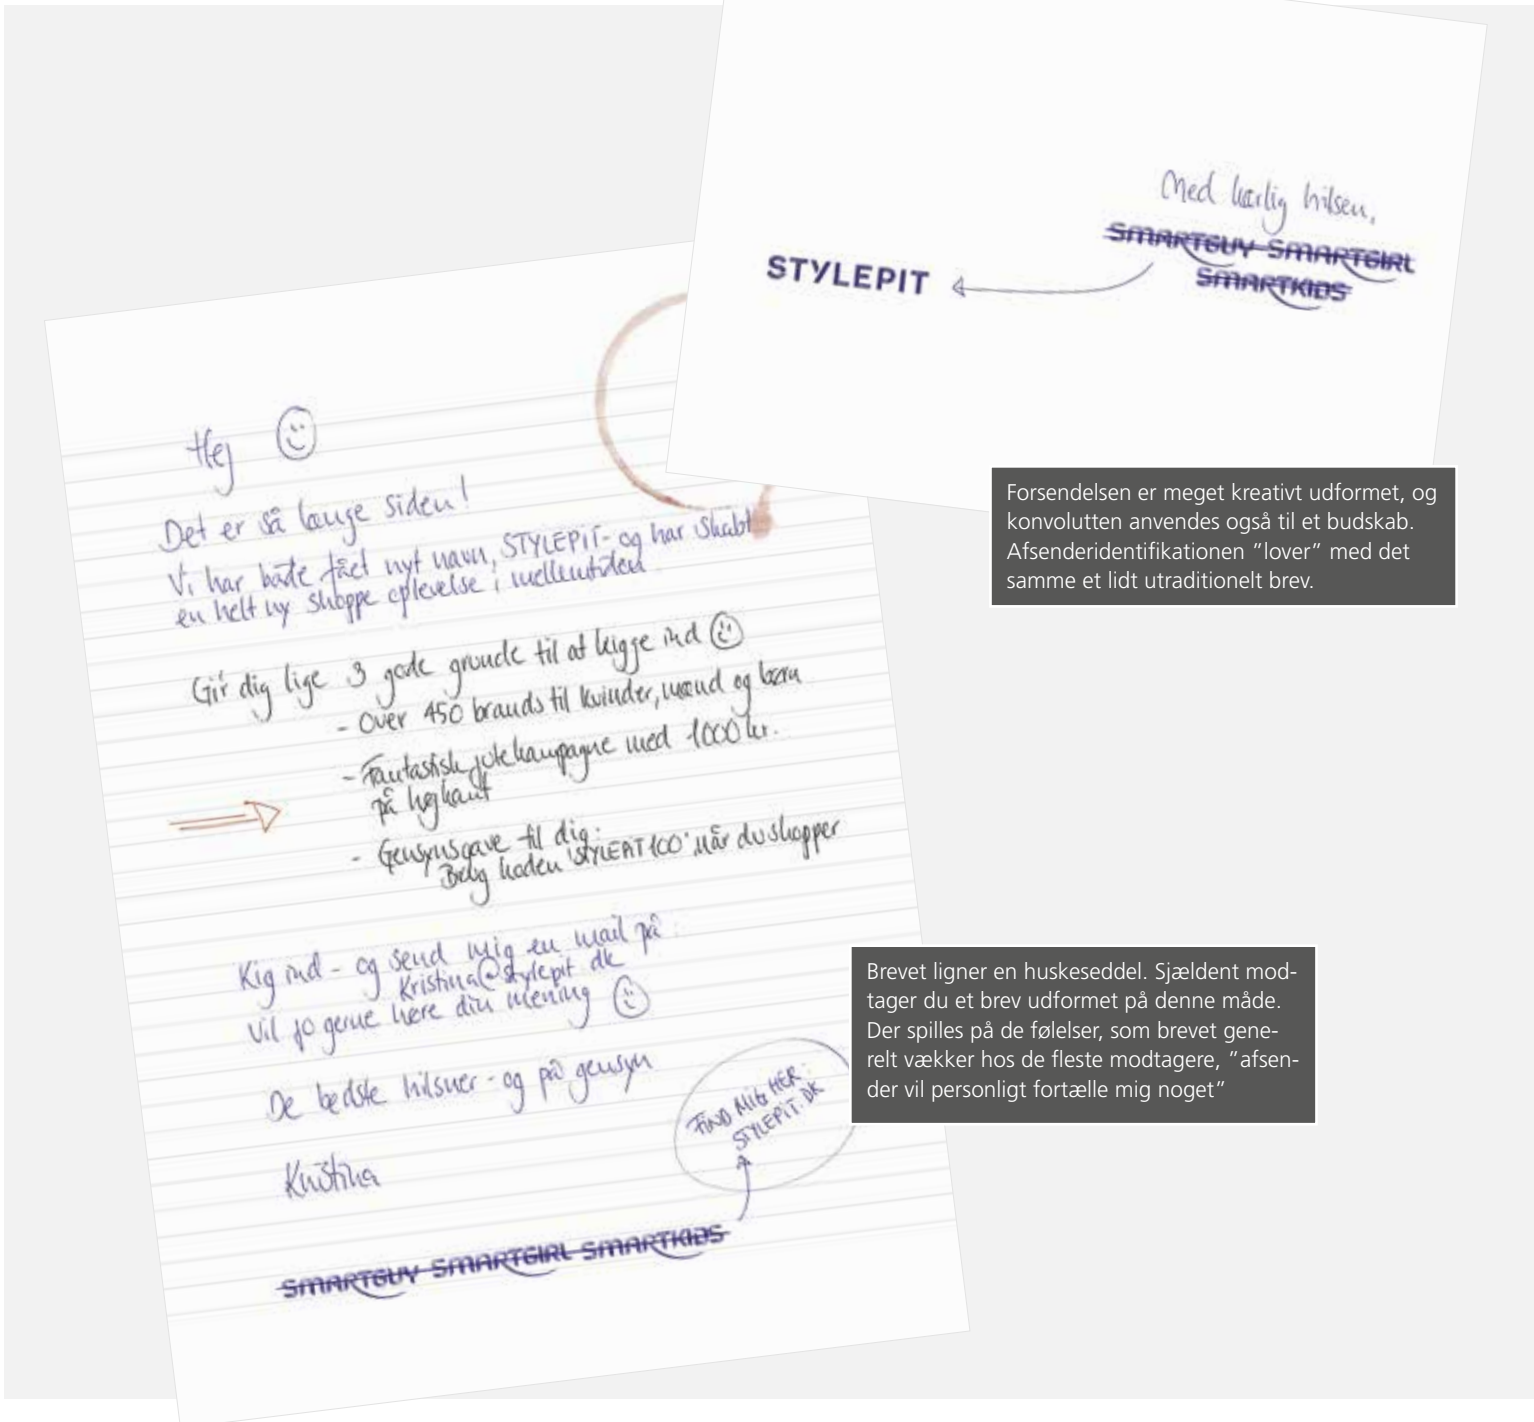 Med kærlig hilsen,
SMARTGUY SMARTGIRL
SMARTKIDS
STYLEPIT
Forsendelsen er meget kreativt udformet, og
konvolutten anvendes også til et budskab.
Afsenderidentifikationen ”lover” med det
samme et lidt utraditionelt brev.
Hej
Det er så længe siden!
Vi har både fået nyt navn, STYLEPIT- og har skabt
en helt ny shoppe oplevelse i mellemtiden
Gi'r dig lige 3 gode grunde til at kigge ind
- Over 450 brands til kvinder, mænd og børn
- Fantastisk jakkekampagne med 1000 kr.
på højkant
- Gensynsgave til dig:
Brug koden 'STYLEPIT100' når du shopper
Kig ind - og send mig en mail på:
Kristina@stylepit.dk
Vil jo gerne høre din mening
De bedste hilsner - og på gensyn
Kristina
FIND MIG HER:
STYLEPIT.DK
SMARTGUY SMARTGIRL SMARTKIDS
Brevet ligner en huskeseddel. Sjældent mod-
tager du et brev udformet på denne måde.
Der spilles på de følelser, som brevet gene-
relt vækker hos de fleste modtagere, ”afsen-
der vil personligt fortælle mig noget”